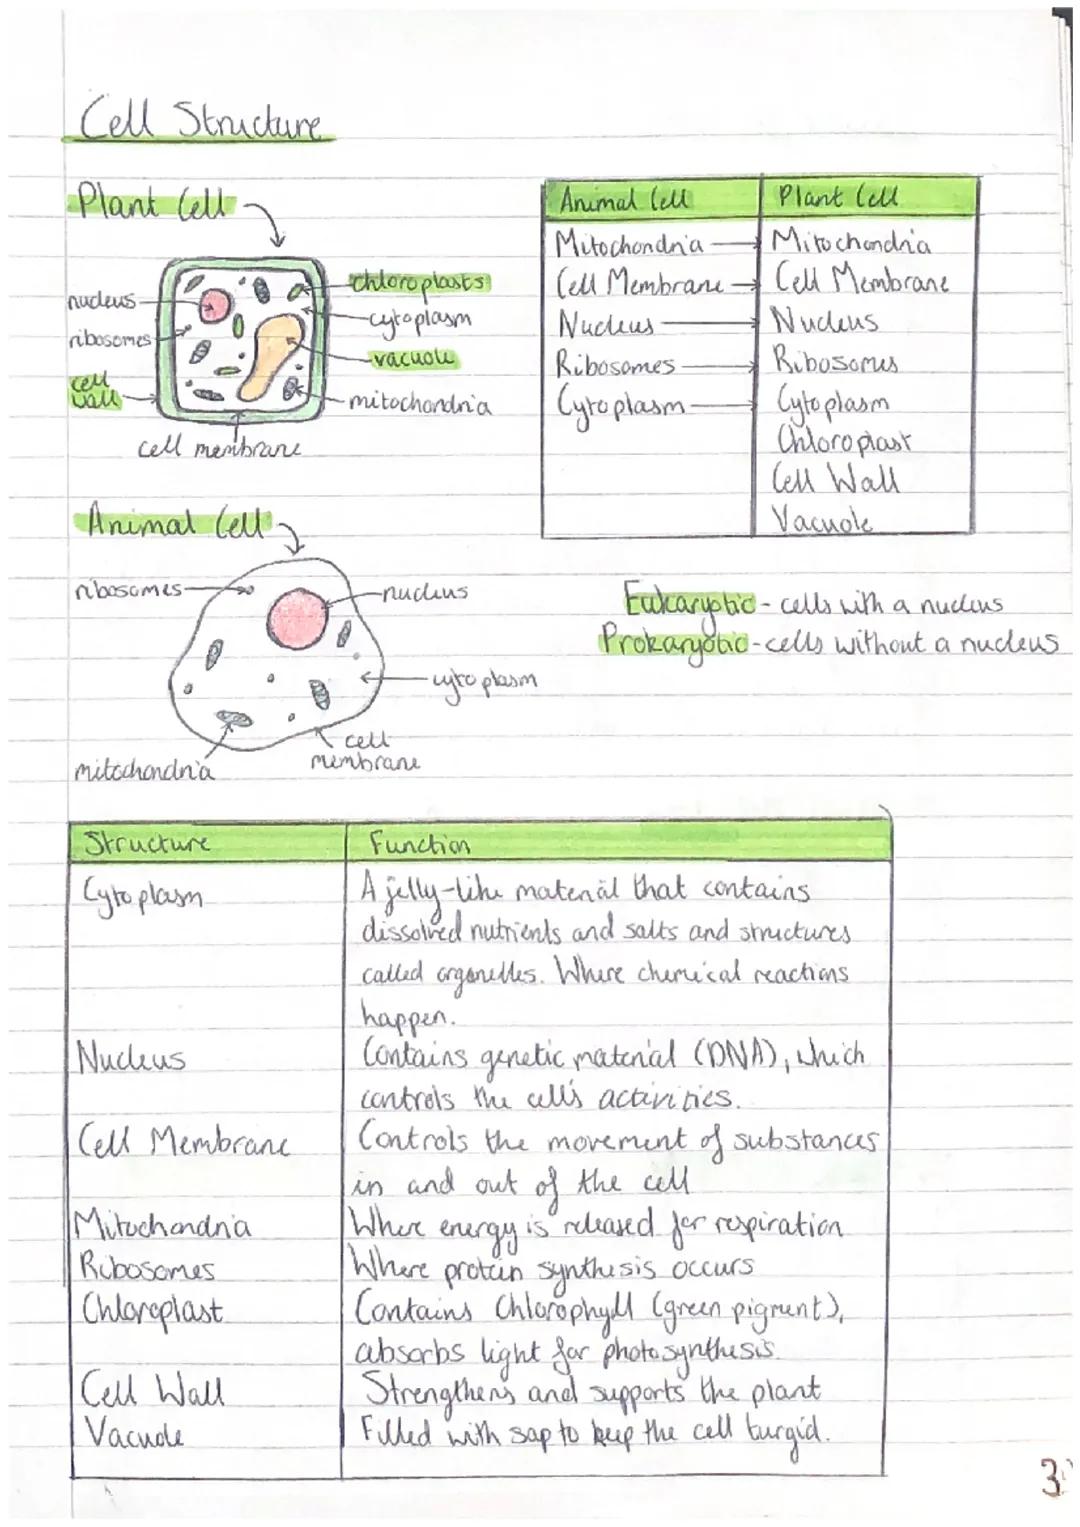 Cell Structure
Plant Cell
nucleus
ribosomes
cell
wall
cell membrane
chloroplasts
cytoplasm
vacuole
mitochondria
Animal Cell Plant Cell
Mitochondria Mitochondria
Cell Membrane Cell Membrane
Nucleus Nucleus
Ribosomes Ribosomes
Cytoplasm Cytoplasm
Chloroplast
Cell Wall
Vacuole
Animal Cell
ribosomes
nucleus
cytoplasm
cell
membrane
mitochondria
Eukaryotic - cells with a nucleus
Prokaryotic - cells without a nucleus
Structure Function
Cytoplasm A jelly-like material that contains
dissolved nutrients and salts and structures
called organelles. Where chemical reactions
happen.
Nucleus Contains genetic material (DNA), which
controls the cell's activities.
Cell Membrane Controls the movement of substances
in and out of the cell
Mitochondria Where energy is released for respiration
Ribosomes Where protein synthesis occurs
Chloroplast Contains Chlorophyll (green pigment),
absorbs light for photosynthesis.
Cell Wall Strengthens and supports the plant
Vacuole Filled with sap to keep the cell turgid.
3